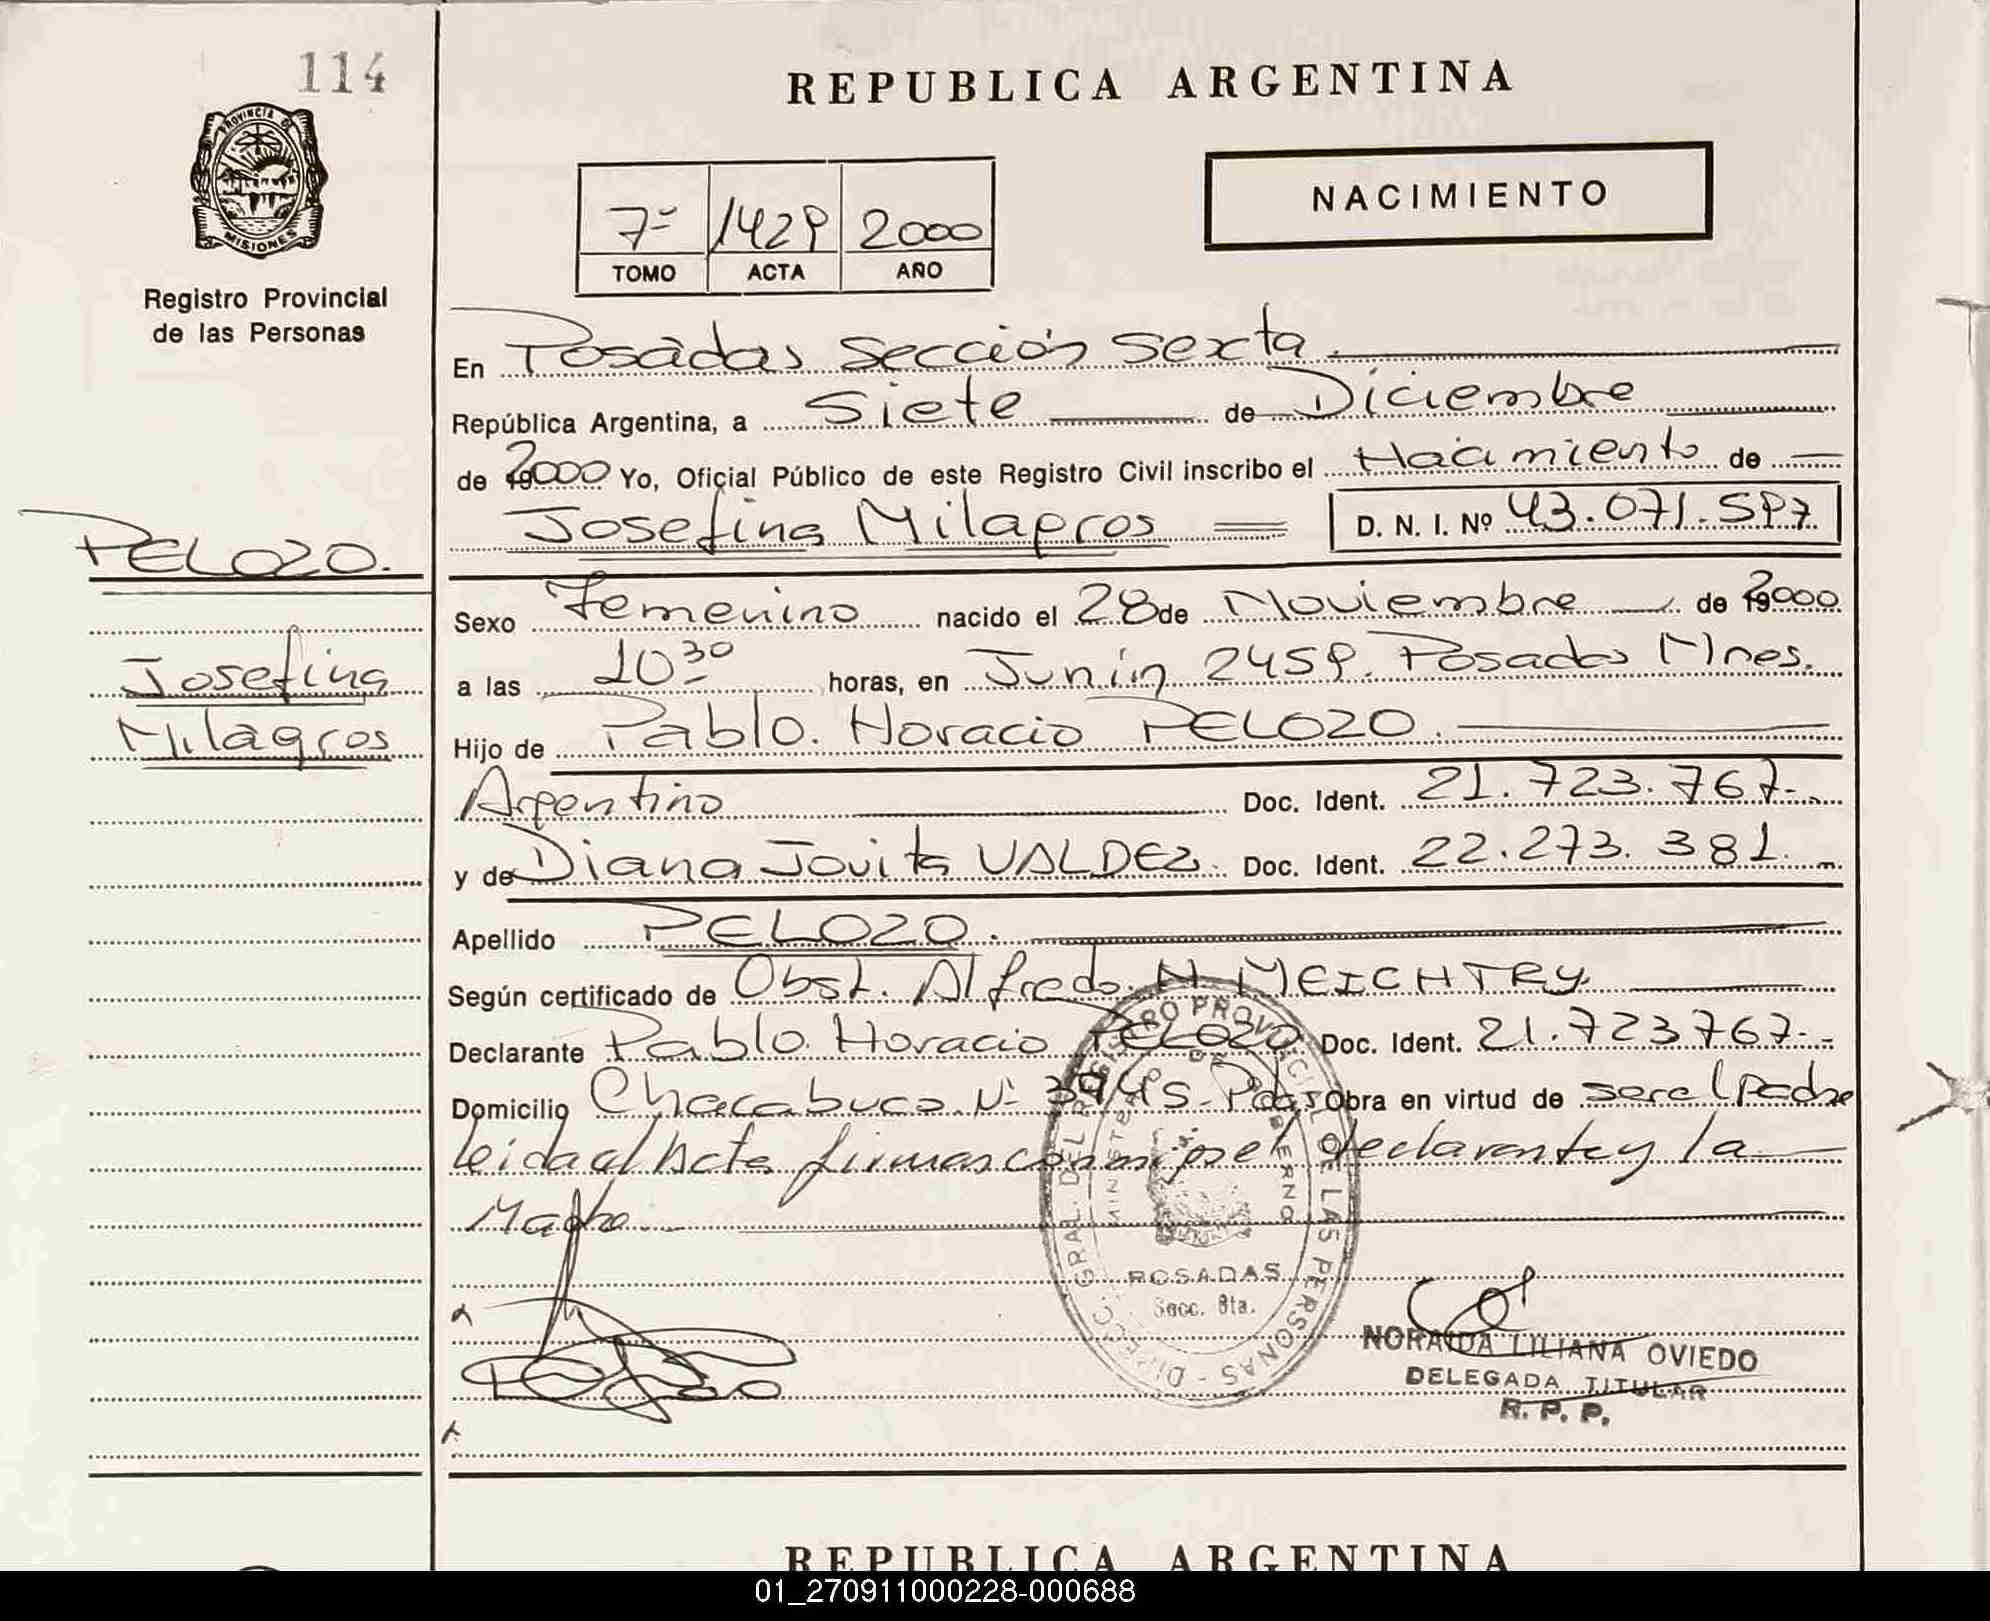 114
PROVINCIA DE
MISIONES
Registro Provincial
de las Personas
PELOZO.
Josefina
Milagros
REPUBLICA ARGENTINA
7º 1429 2000
TOMO ACTA AÑO
NACIMIENTO
En Posadas Sección Sexta.
República Argentina, a Siete de Diciembre
de 2000 Yo, Oficial Público de este Registro Civil inscribo el Nacimiento de
Josefina Milagros D. N. I. Nº 43.071.597
Sexo Femenino nacido el 28 de Noviembre de 2000
a las 10 30 horas, en Junín 2459. Posadas Mnes.
Hijo de Pablo Horacio PELOZO.
Argentino Doc. Ident. 21.723.767.-
y de Diana Jovita VALDEZ. Doc. Ident. 22.273.381.
Apellido PELOZO.
Según certificado de Obst. Alfredo N MEICHTRY.
Declarante Pablo Horacio PELOZO. Doc. Ident. 21.723767.-
Domicilio Chacabuco Nº Pdas Obra en virtud de ser el Padre
leida el Acta firman conmigo el declarante y la
Madre
DIRECC. GRAL. DEL REGISTRO PROVINCIAL DE LAS PERSONAS -
MINISTERIO DE GOBIERNO
POSADAS
Secc. 6ta.
NORAIDA LILIANA OVIEDO
DELEGADA TITULAR
R. P. P.
REPUBLICA ARGENTINA
01_270911000228-000688